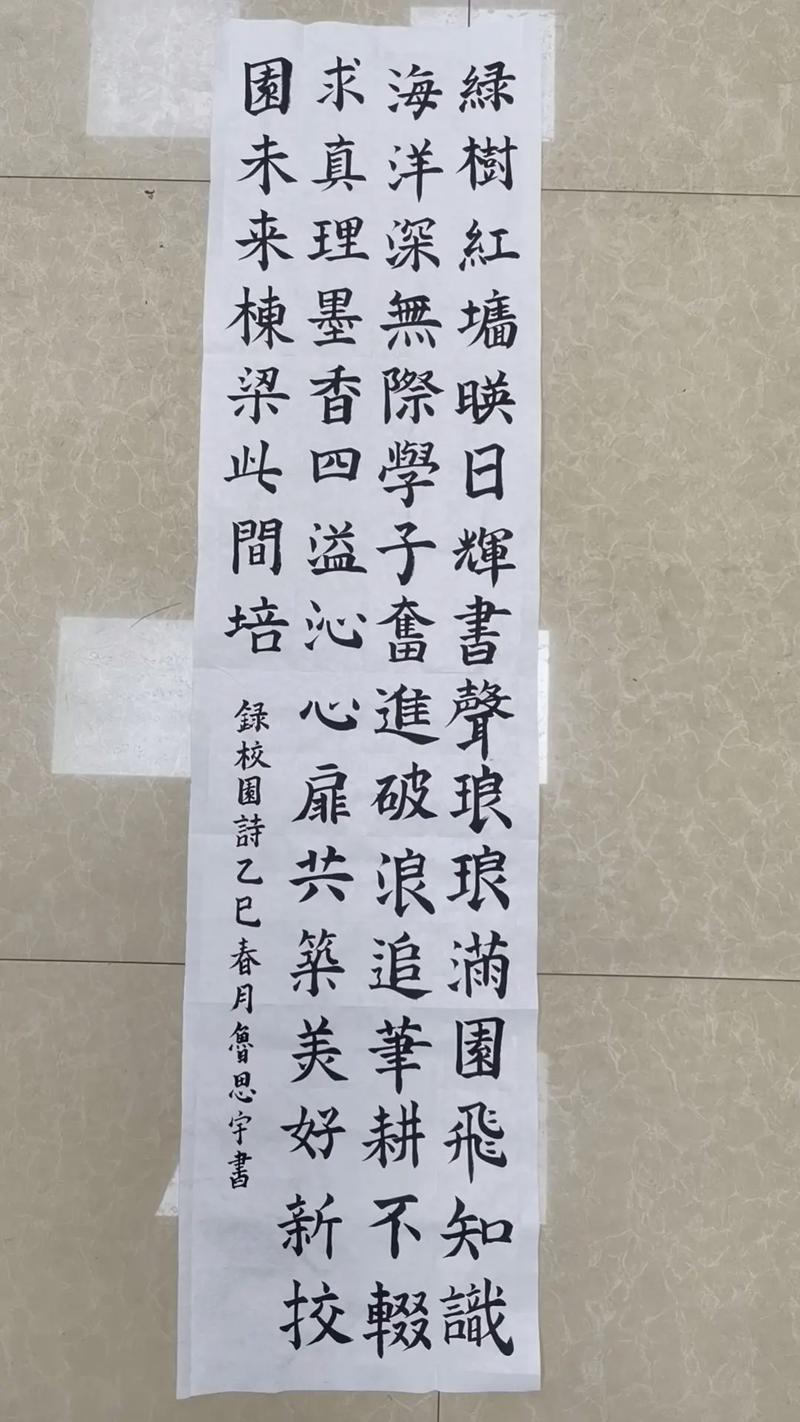 緑樹紅墻暎日輝書聲琅琅滿園飛知識
海洋深無際學子奮進破浪追筆耕不輟
求真理墨香四溢沁心扉共築美好新挍
園未来棟梁此間培
録校園詩乙巳春月魯思宇書